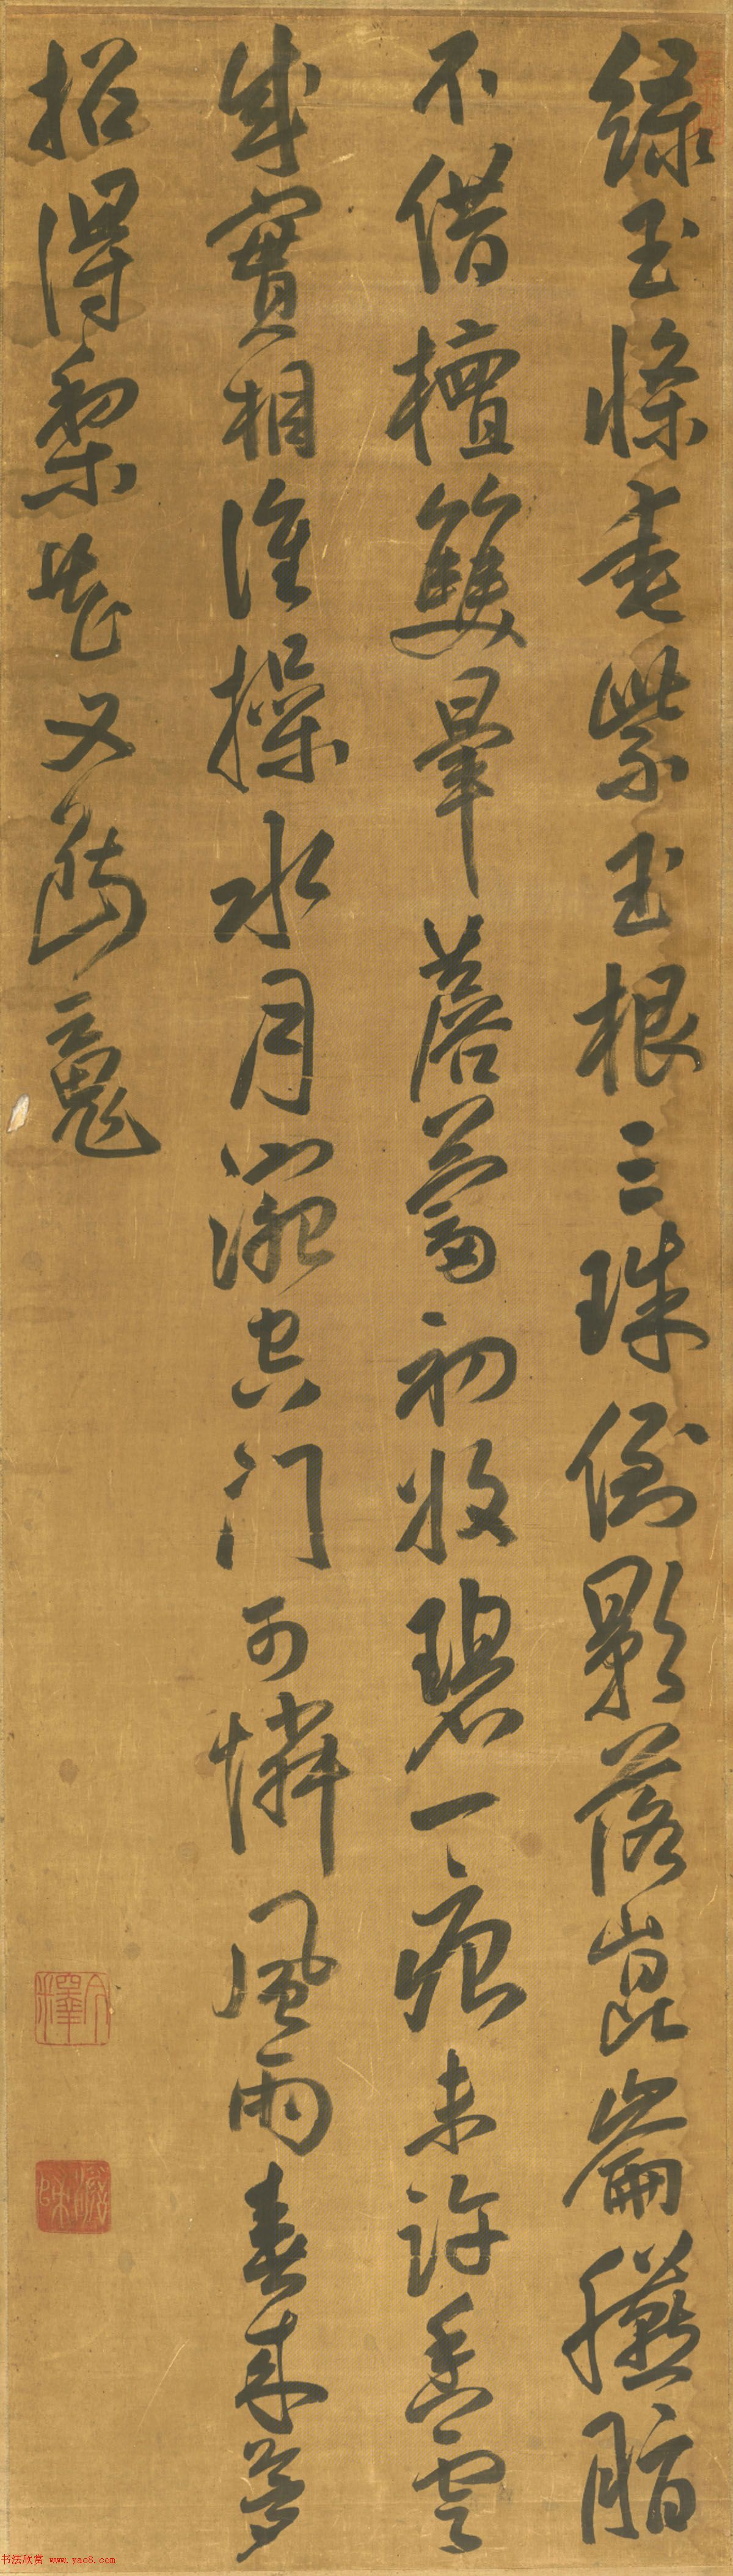 綠玉條垂紫玉根三珠倒影落崑崙臙脂
不借檀雙暈薝蔔初收碧一痕未許香雲
成實相誰操水月空門可憐風雨春來夢
招得梨花又斷魂
书法欣赏 www.yac8.com